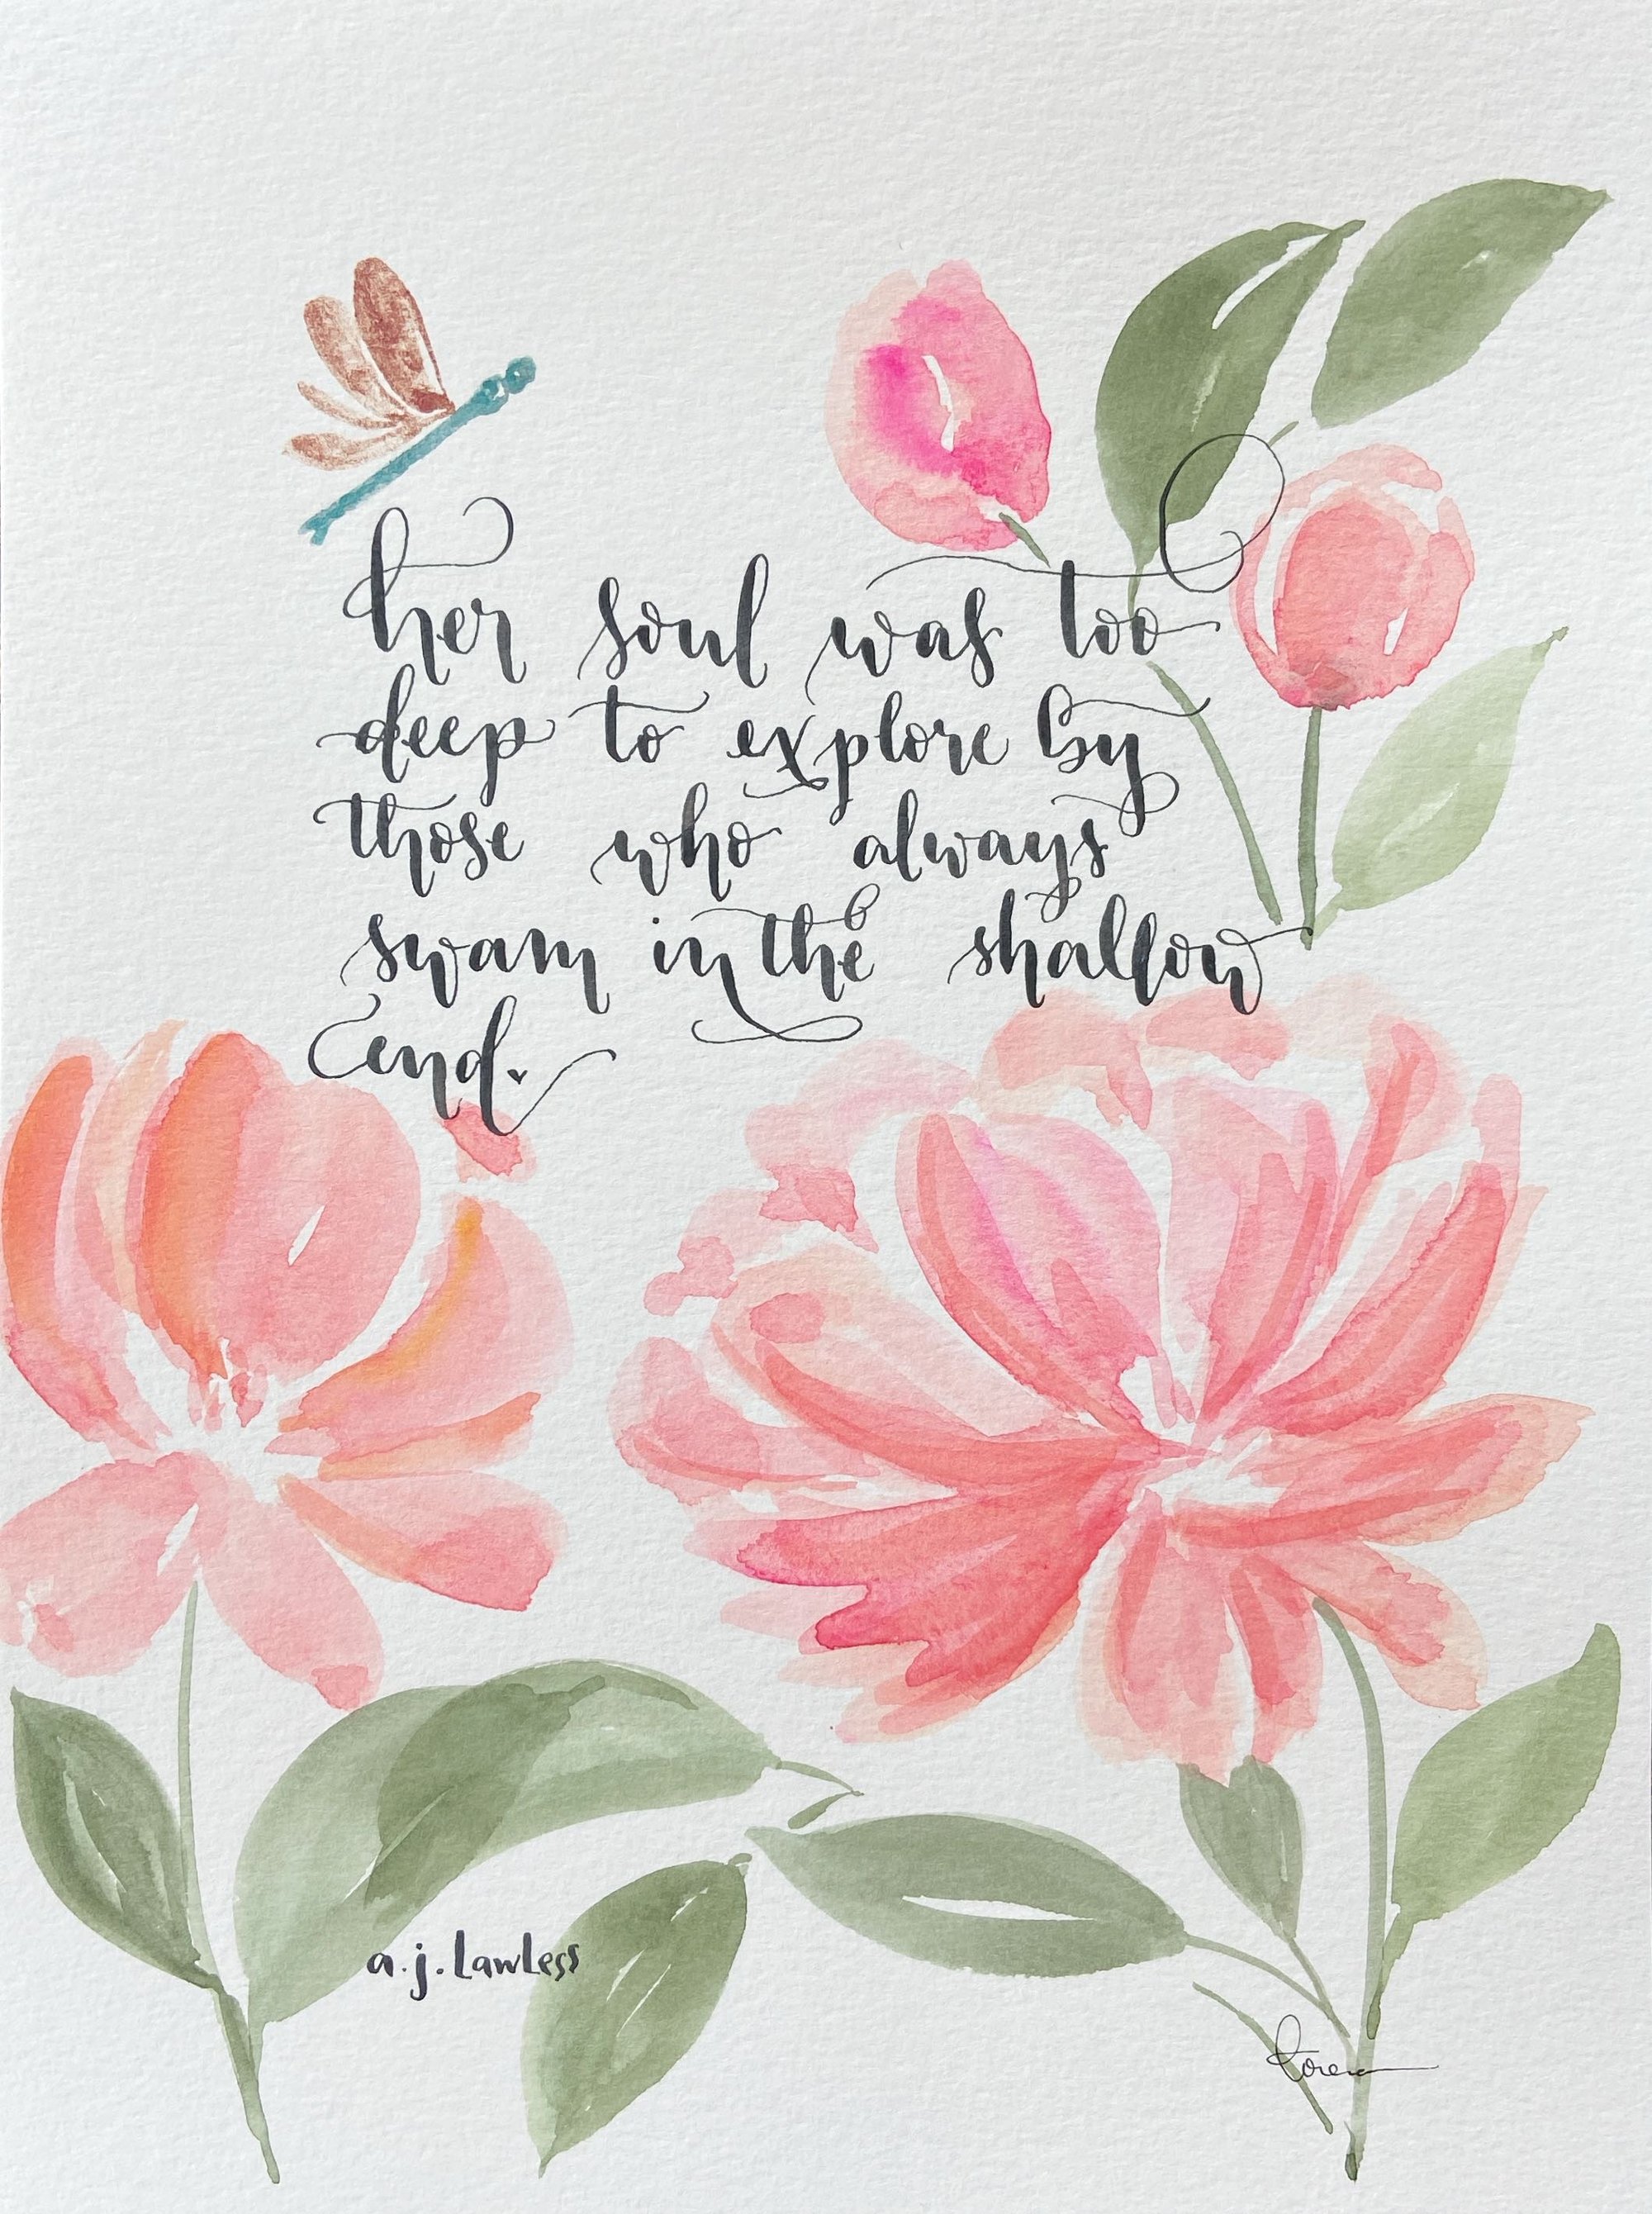 her soul was too
deep to explore by
those who always
swam in the shallow
end.
a.j. Lawless